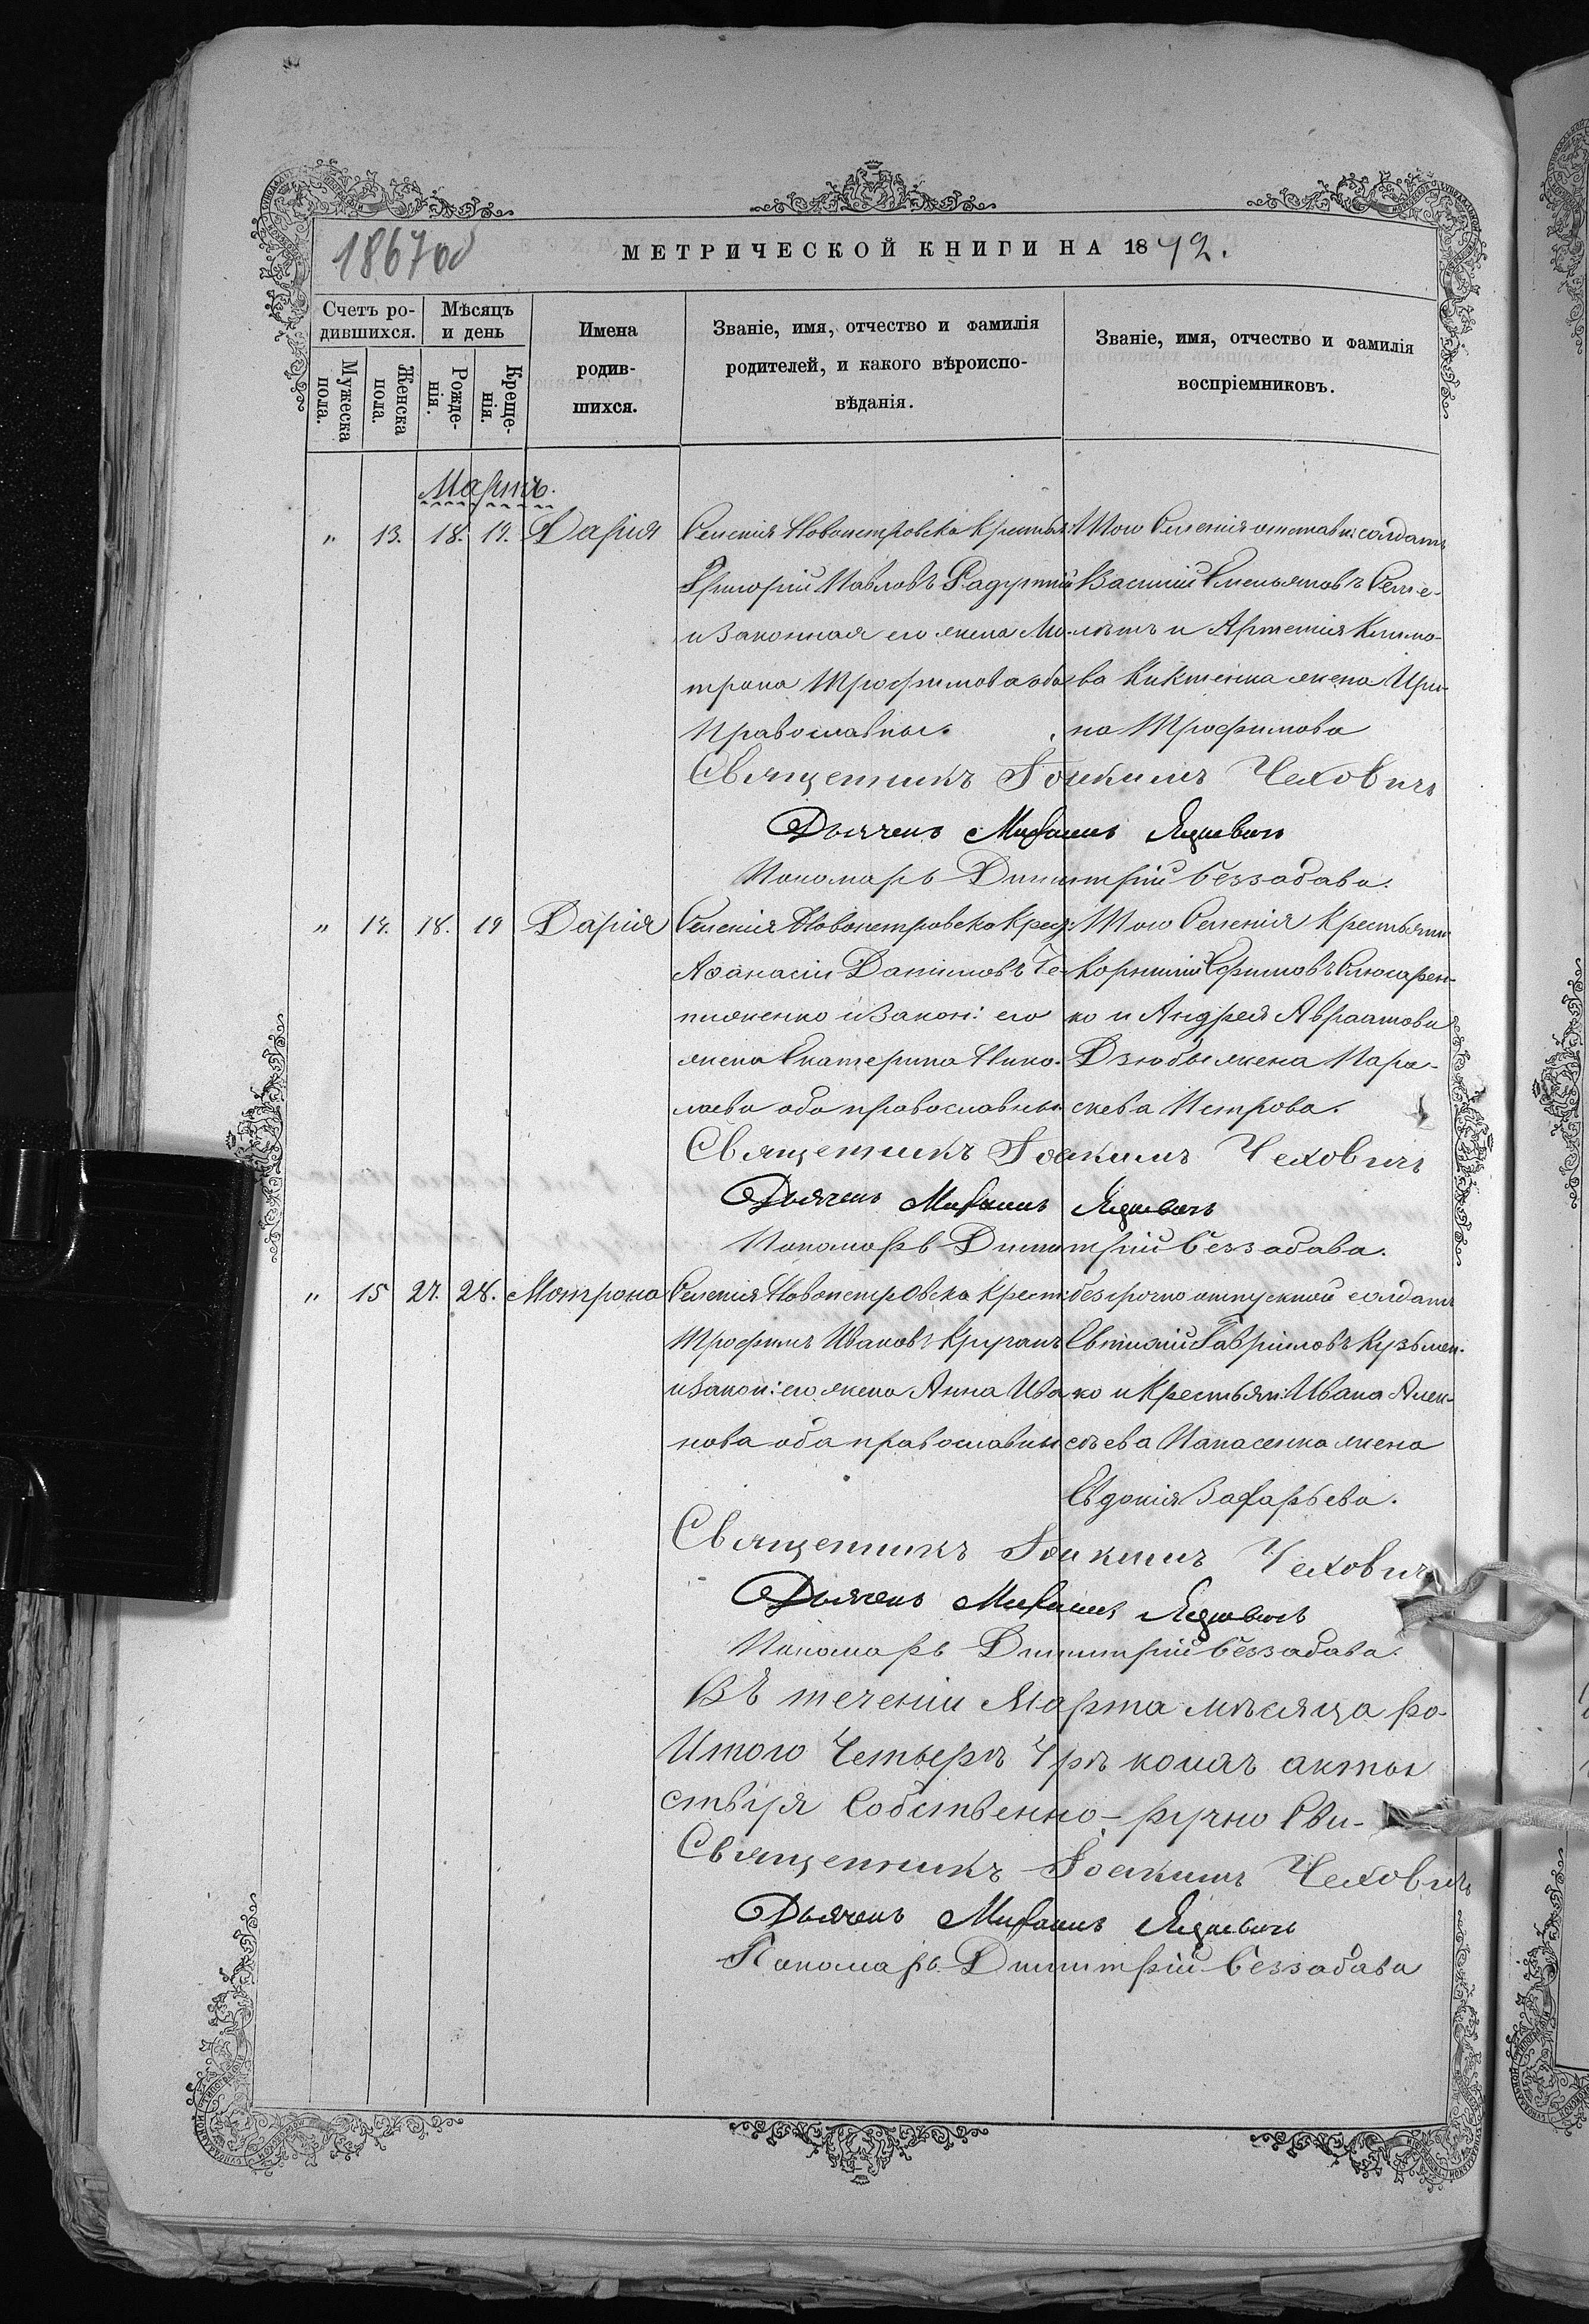 1867об
МЕТРИЧЕСКОЙ КНИГИ НА 1872.
Счетъ ро-
дившихся.
Мѣсяцъ
и день
Мужеска
пола.
Женска
пола.
Рожде-
нія.
Креще-
нія.
Имена
родив-
шихся.
Званіе, имя, отчество и фамилія
родителей, и какого вѣроиспо-
вѣданія.
Званіе, имя, отчество и фамилія
воспріемниковъ.
Мартъ.
" 13. 18. 19. Дарія
Селенія Новопетровска Крестья:
Григорій Павловъ
и Законная его жена Мо-
трона Трофимова оба
Православные.
Того Селенія отставн: солдатъ
Василій Емельяновъ
и Артемія Климо-
ва Киктенка жена Ири-
на Трофимова
Священникъ Іоакимъ Чеховичъ
Дьячекъ Михаилъ Яцкевичъ
Пономарь Димитрій Беззабава.
" 14. 18. 19 Дарія
Селенія Новопетровска Крес:
Аѳанасій Даниловъ Те-
пляженко и Закон: его
жена Екатерина Нико-
лаева оба православные
Того Селенія Крестьянин
Корнилій Ефимовъ Слюсарен-
ко и Андрея Авраамова
Дзюбы жена Пара-
скева Петрова.
Священникъ Іоакимъ Чеховичъ
Дьячекъ Михаилъ Яцкевичъ
Пономарь Димитрій Беззабава.
" 15 27. 28. Мотрона
Селенія Новопетровска Крест:
Трофимъ Ивановъ Круганъ
и Закон: его жена Анна Ива
нова оба православные
безсрочно отпускной солдатъ
Евтихій Гавриловъ Кузьмен-
ко и Крестьян: Ивана Алек-
сѣева Панасенка жена
Евдокія Захарьева.
Священникъ Іоакимъ Чеховичъ
Дьячекъ Михаилъ Яцкевичъ
Пономарь Димитрій Беззабава.
Въ теченіи Марта мѣсяца ро-
Итого Четыре акты
ствуя Собственно-ручно Сви-
Священникъ Іоакимъ Чеховичъ
Дьячекъ Михаилъ Яцкевичъ
Пономарь Димитрій Беззабава